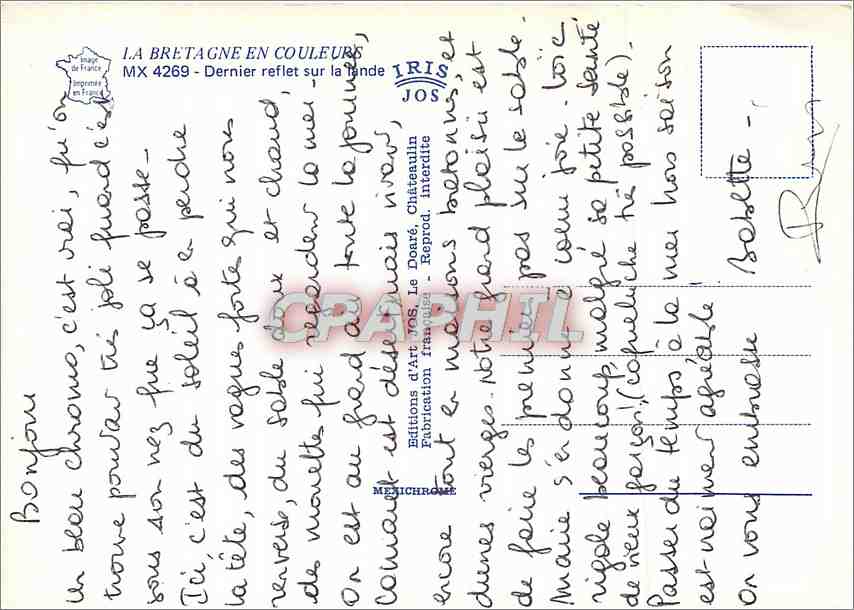 LA BRETAGNE EN COULEURS
MX 4269 - Dernier reflet sur la lande
Image
de France
Imprimée
en France
IRIS
JOS
Editions d'Art JOS, Le Doaré, Châteaulin
Fabrication française - Reprod. interdite
MEXICHROME
CPAPHIL
Bonjour
un beau chromo, c'est vrai, qu'on
trouve pourtant très joli quand c'est
sous son nez que ça se passe -
Ici, c'est du soleil à en perdre
la tête, des vagues fortes qui nous
renverse, du sable doux et chaud,
des mouettes qui regardent la mer -
On est au grand air toute la journée,
Carnac est désormais vivant,
encore tout en maisons bretonnes, et
dunes vierges. Notre grand plaisir est
de faire les premiers pas sur le sable -
Marie s'en donne à coeur joie - Loïc
rigole beaucoup, malgré sa petite santé
de vieux garçon! (coqueluche très possible) -
Passer du temps à la mer hors saison
est vraiment agréable!
On vous embrasse Babette -